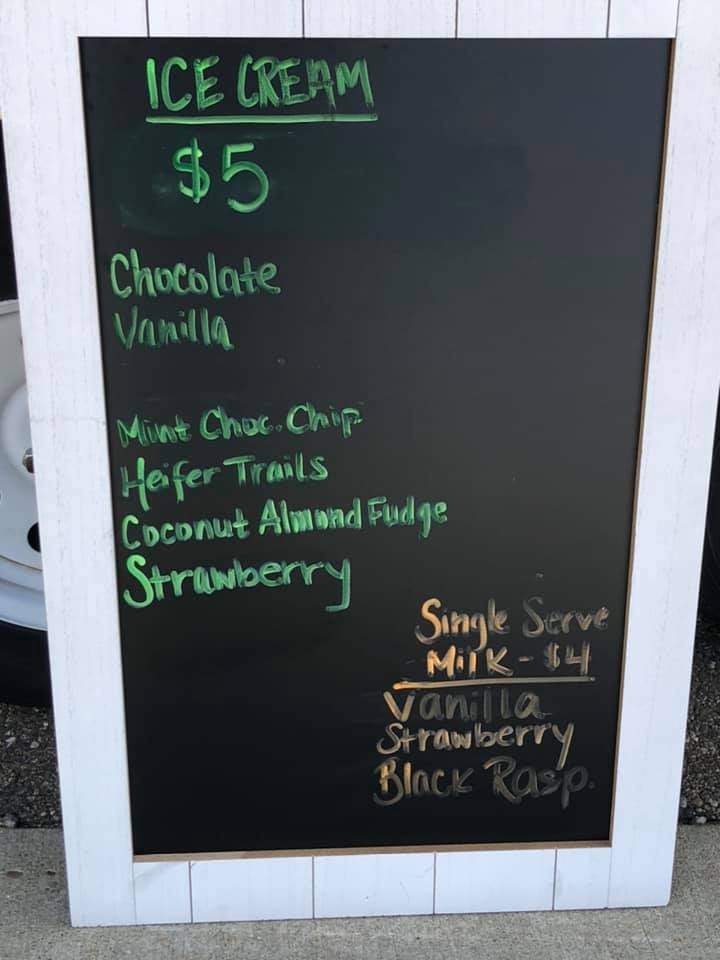 ICE CREAM
$5
Chocolate
Vanilla
Mint Choc. Chip
Heifer Trails
Coconut Almond Fudge
Strawberry
Single Serve
Milk - $4
Vanilla
Strawberry
Black Rasp.